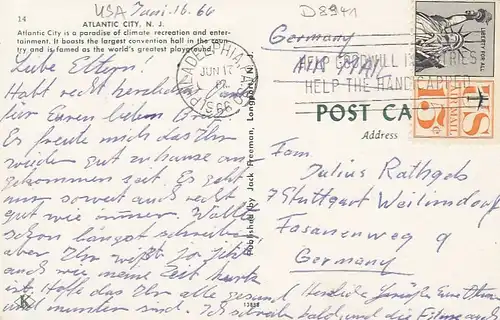 USA Juni. 16. 66
D8941
14
ATLANTIC CITY, N. J.
Atlantic City is a paradise of climate recreation and entertainment. It boasts the largest convention hall in the country and is famed as the world's greatest playground.
Liebe Eltern!
Habt recht herzlichen Dank
für Euren lieben Brief.
Es freute mich das Ihr
wieder gut zuhause an-
gekommen seit. Es geht
uns soweit auch recht
gut wie immer. Wollte
schon längst schreiben
aber Ihr wißt ja jetzt
auch wie meine Zeit kurz
ist. Hoffe das Ihr alle gesund
und munter sind. Ich schreibe bald und die Filme auch
(Herzliche Grüße Eure
PHILADELPHIA, PA.
JUN 17
1966
HELP GOODWILL INDUSTRIES
HELP THE HANDICAPPED
LIBERTY FOR ALL
15¢
AIR MAIL
Germany
AIR MAIL
POST CARD
Address
Published by Jack Freeman, Longport, N.J.
Fam.
Julius Rathgeb
7 Stuttgart Weilimdorf
Fasanenweg 9
Germany
K